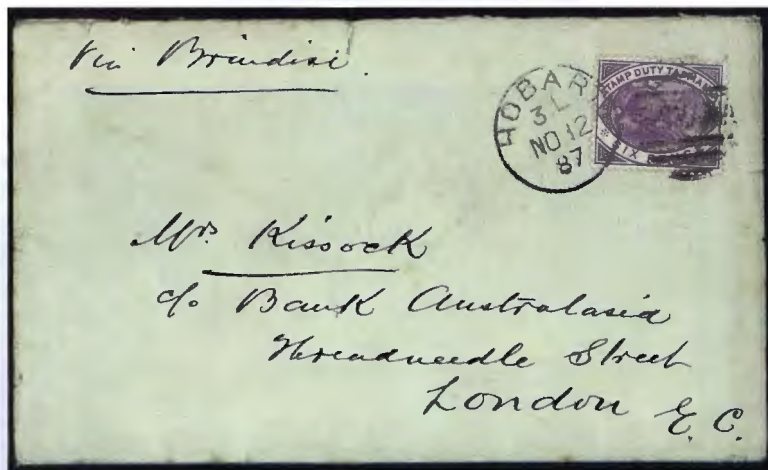 Via Brindisi.
HOBAR
3 L
NO 12
87
STAMP DUTY
SIX
Mrs Kissock
c/o Bank Australasia
Threadneedle Street
London E.C.